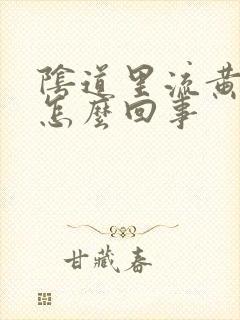 陰道里流黃
怎麼回事
甘藏春